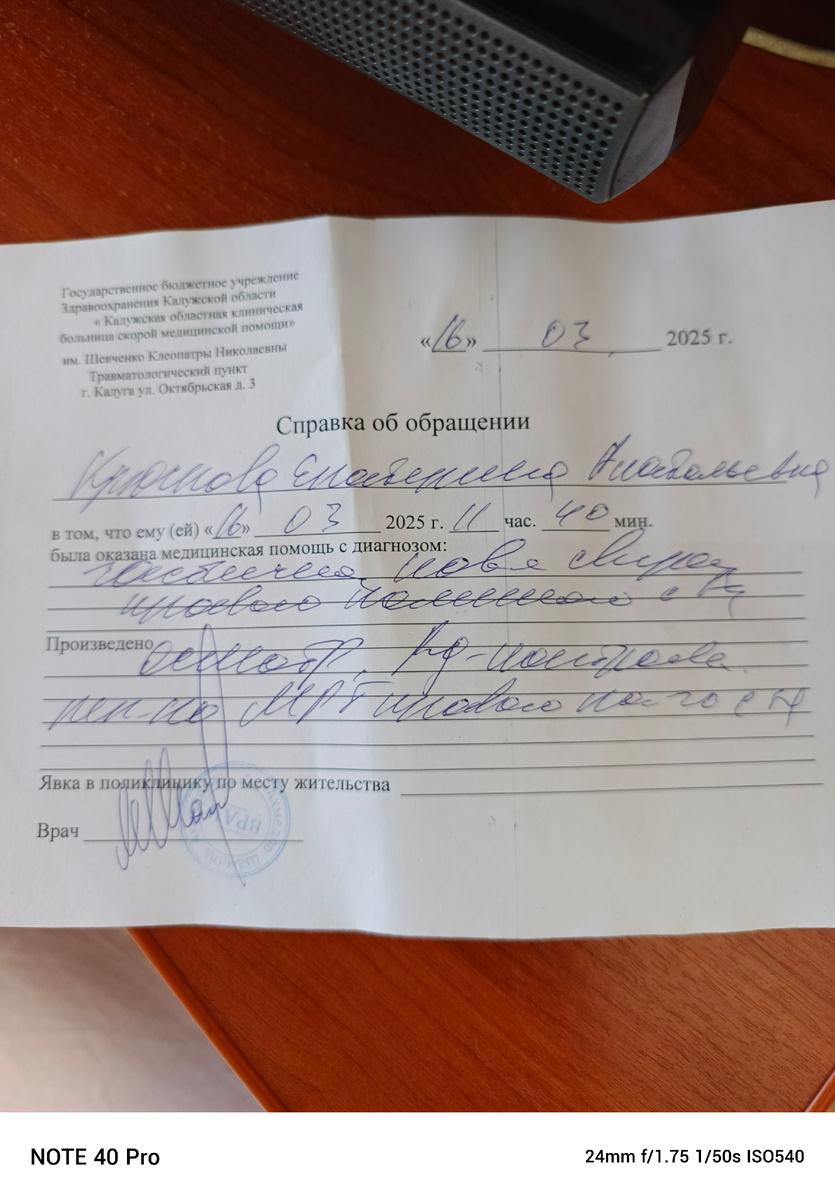 Государственное бюджетное учреждение
Здравоохранения Калужской области
« Калужская областная клиническая
больница скорой медицинской помощи»
им. Шевченко Клеопатры Николаевны
Травматологический пункт
г. Калуга ул. Октябрьская д. 3
«16» 03 2025 г.
Справка об обращении
Екатерина Анатольевна
в том, что ему (ей) «16» 03 2025 г. 11 час. 40 мин.
была оказана медицинская помощь с диагнозом:
Произведено осмотр, Rg-контроль
МРТ
Явка в поликлинику по месту жительства
Врач
ВРАЧ
NOTE 40 Pro
24mm f/1.75 1/50s ISO540